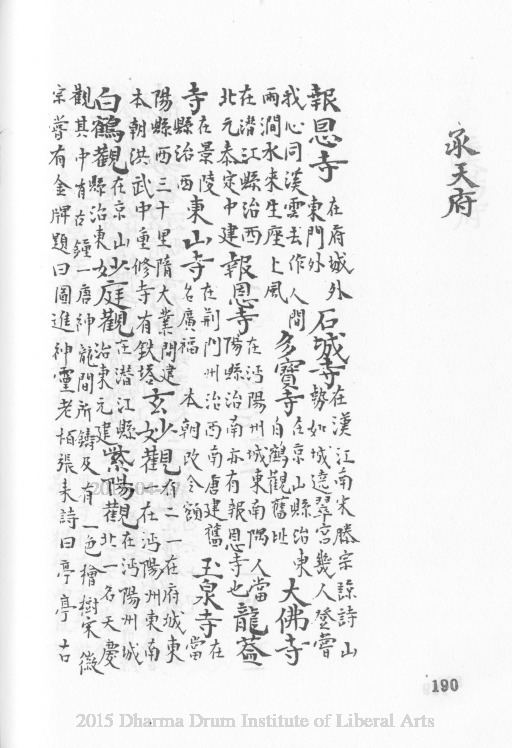 承天府
報恩寺 在府城外
東門外
石城寺 在漢江南宋滕宗諒詩山
勢如城遠翠宮幾人登嘗
我心同漢雲去作人間
兩澗水来生座上風
多寶寺 在京山縣治東
白鶴觀舊址
大佛寺
在潛江縣治西
北元泰定中建
報恩寺 在沔陽州城東南隅人當
陽縣治南亦有報恩寺也
龍葢
寺 在景陵
縣治西
東山寺 在荆門州治西南唐建舊
名廣福 本朝改今額
玉泉寺 在
當
陽縣西三十里隋大業間建
本朝洪武中重修寺有鉄塔
玄妙觀 有二一在府城東
一在沔陽州東南
白鶴觀 在京山
縣治東
妙庭觀 在潛江縣
治東元建
紫陽觀 在沔陽州城
北一名天慶
觀其中有古鐘一唐神龍間所鑄及有一色檜樹宋徽
宗嘗有金牌題曰圖進神靈老栢張耒詩曰亭亭古
190
2015 Dharma Drum Institute of Liberal Arts